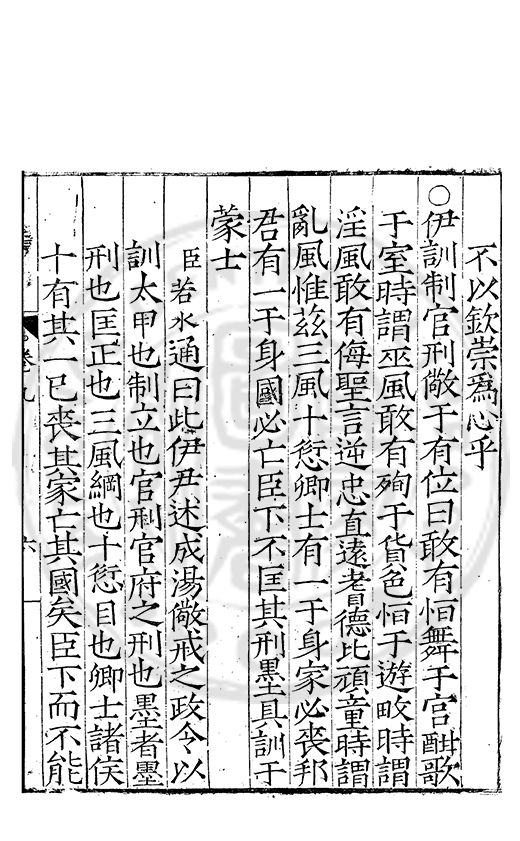 不以欽崇爲心乎
○伊訓制官刑儆于有位曰敢有恒舞于宮酣歌
于室時謂巫風敢有殉于貨色恒于遊畋時謂
淫風敢有侮聖言逆忠直遠耆德比頑童時謂
亂風惟茲三風十愆卿士有一于身家必喪邦
君有一于身國必亡臣下不匡其刑墨具訓于
蒙士
臣若水通曰此伊尹述成湯儆戒之政令以
訓太甲也制立也官刑官府之刑也墨者墨
刑也匡正也三風綱也十愆目也卿士諸侯
十有其一已喪其家亡其國矣臣下而不能
卷九
六